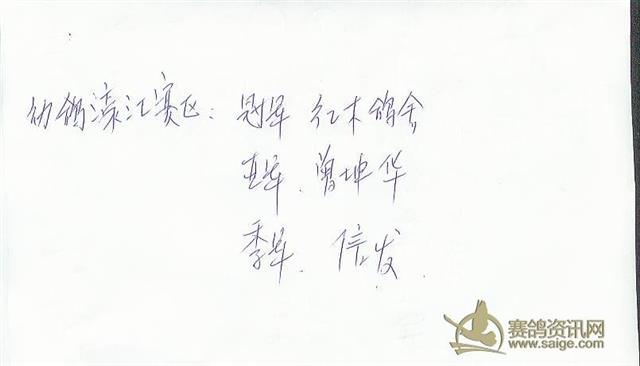 幼鸽濠江赛区：冠军 红木鸽舍
亚军、曾坤华
季军、信发
赛鸽资讯网
www.saige.com